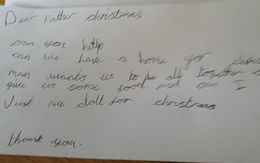 Dear Father christmas
can you help
can we have a home for
mam wants us to be all together
give us some good and can I
Just one doll for christmas
thank you.